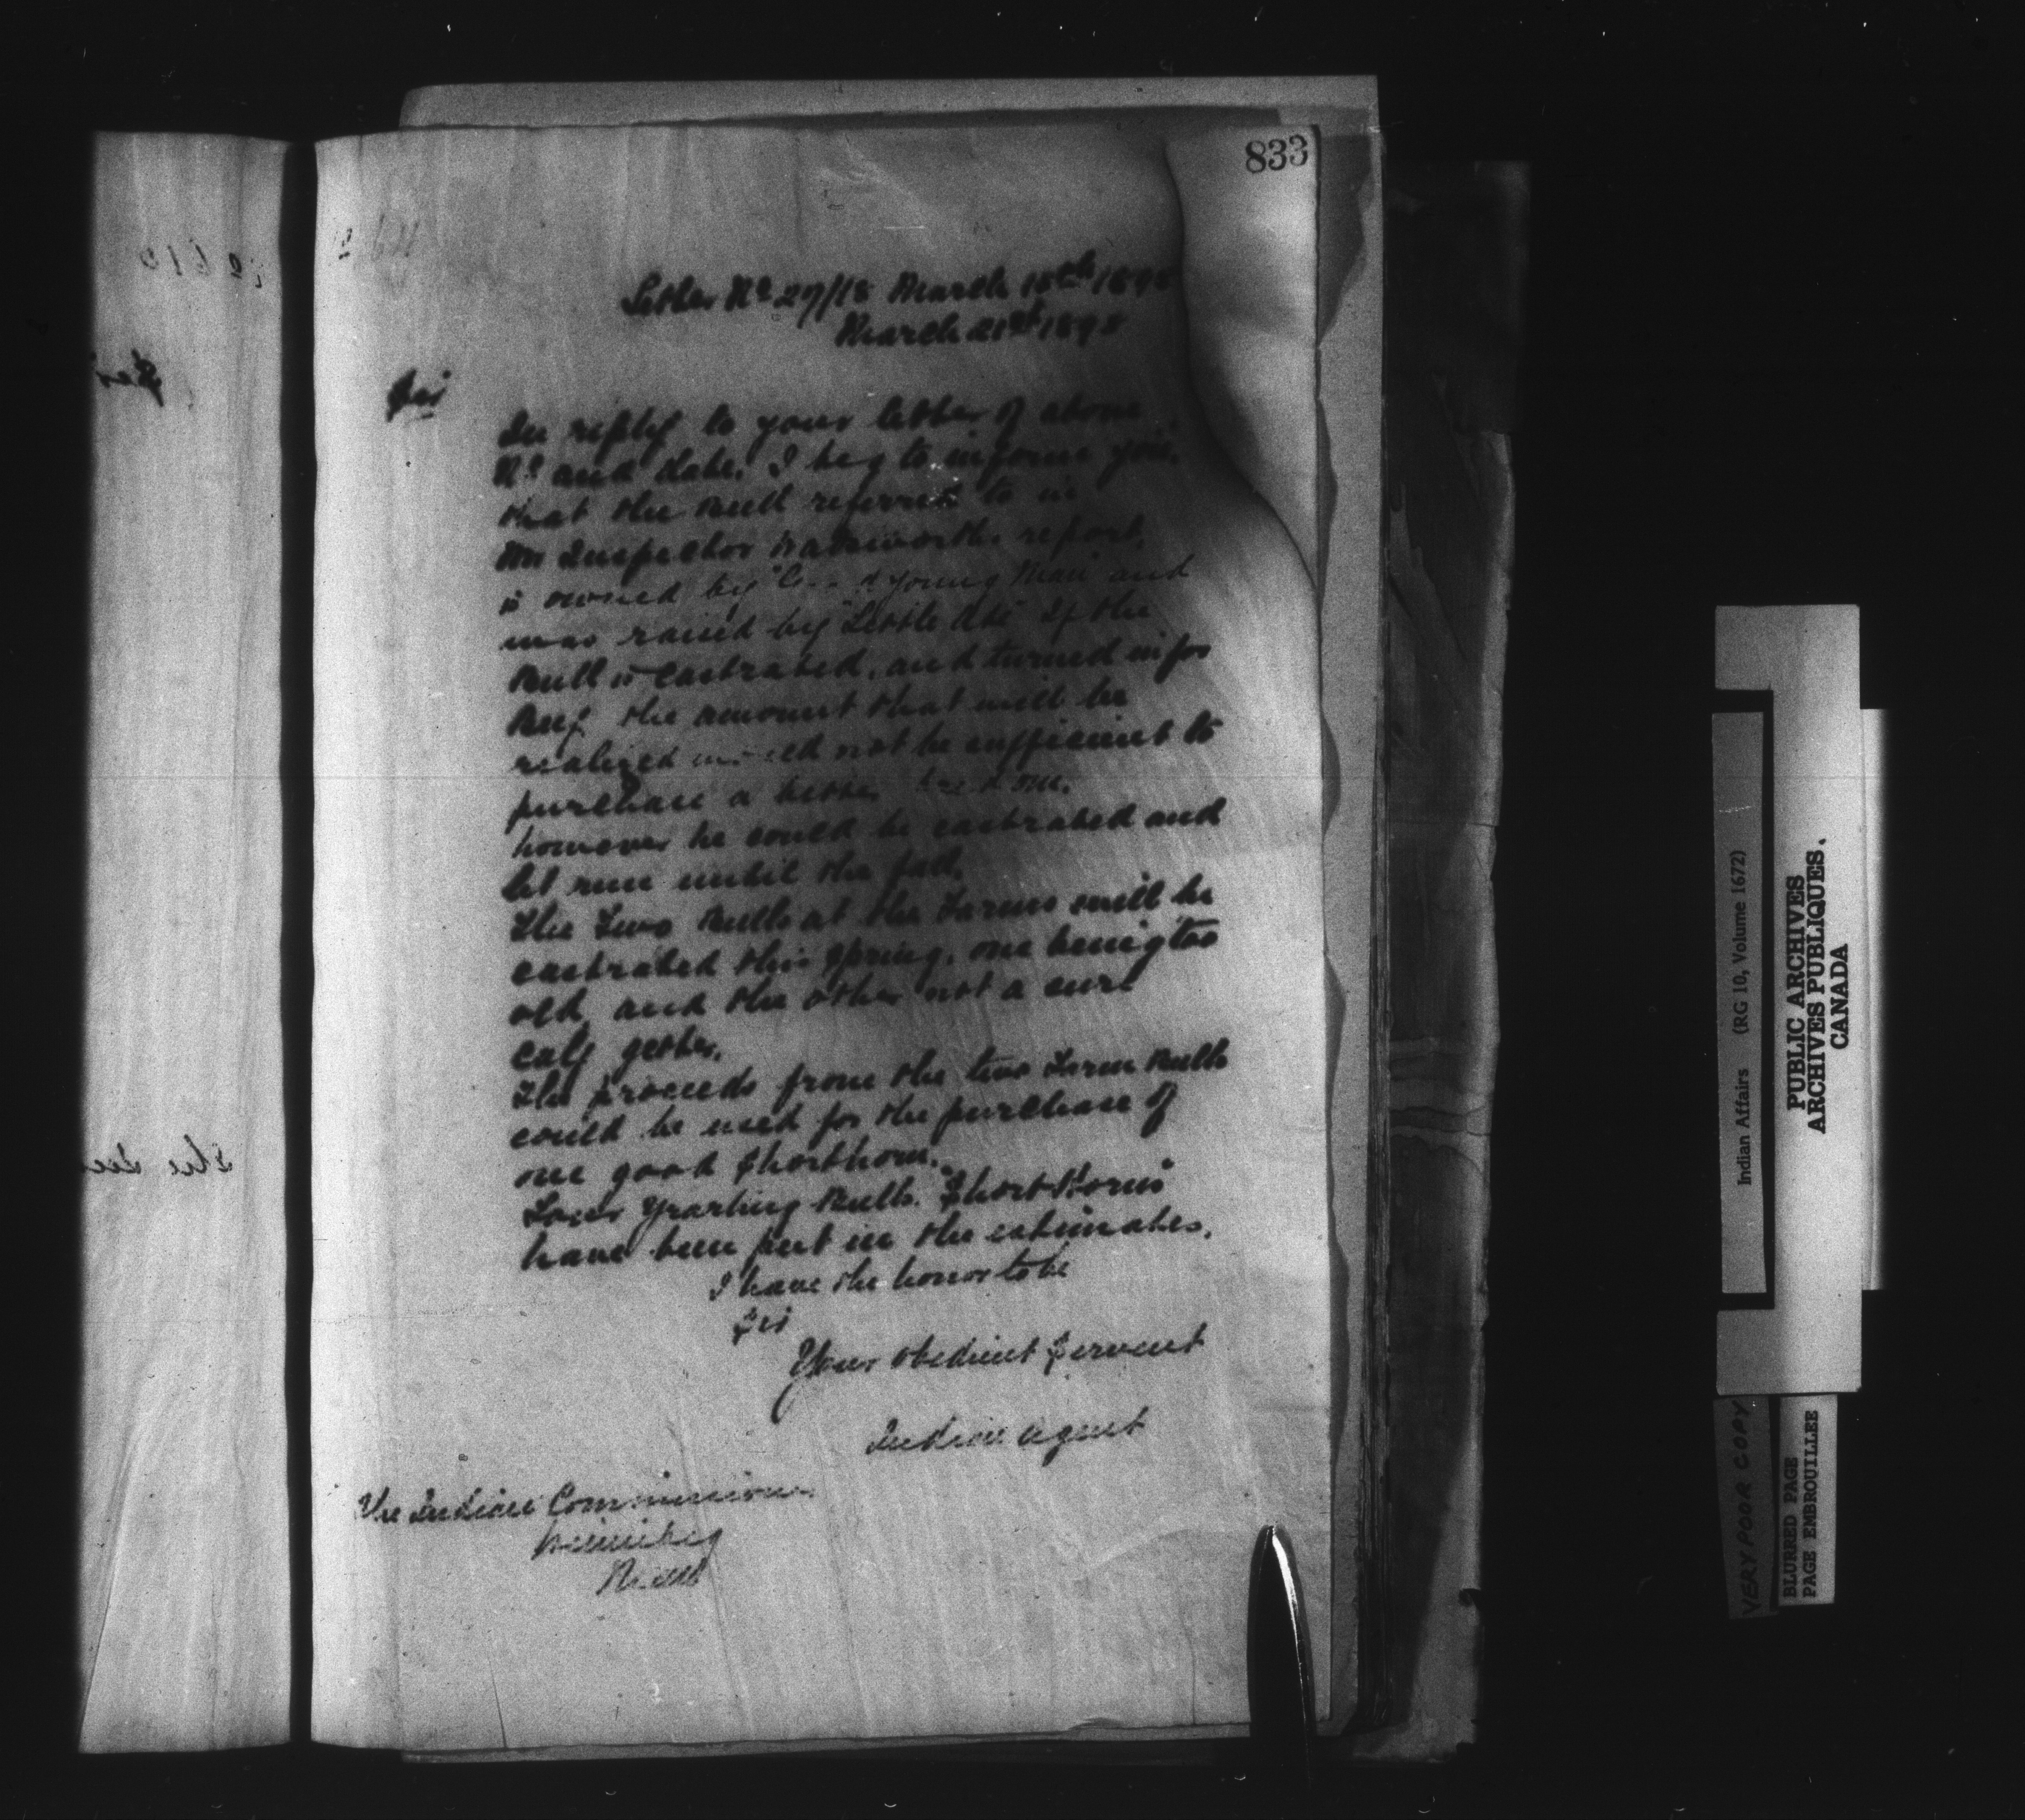 833
Letter No 27/18 March 15th 1898
March 21st 1898
Sir
In reply to your letter of above
No and date, I beg to inform you,
that the Bull referred to in
Mr Inspector Wadsworth's report,
is owned by young Man and
was raised by "Little Axe" If the
Bull is castrated, and turned in for
Beef the amount that will be
realized would not be sufficient to
purchase a better bred one.
however he could be castrated and
let run until the fall.
The Two Bulls at the Farms will be
castrated this Spring, one being too
old and the other not a sure
calf getter.
The proceeds from the two Farm Bulls
could be used for the purchase of
one good Shorthorn.
Four Yearling Bulls. "Short Horns"
have been put in the estimates.
I have the honor to be
Sir
Your obedient Servant
Indian Agent
The Indian Commissioner
Winnipeg
Indian Affairs (RG 10, Volume 1672)
PUBLIC ARCHIVES
ARCHIVES PUBLIQUES.
CANADA
VERY POOR COPY
BLURRED PAGE
PAGE EMBROUILLEE